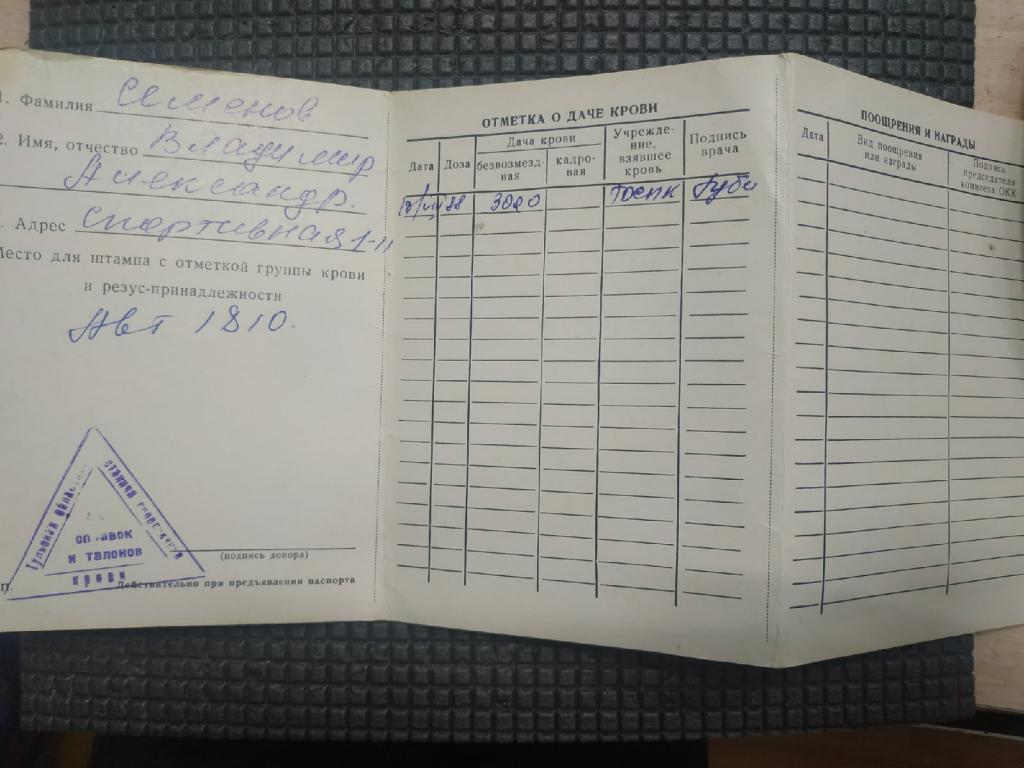 1. Фамилия Семенов
2. Имя, отчество Владимир
Александр.
Адрес Спортивная 1-11
Место для штампа с отметкой группы крови
и резус-принадлежности
1810.
Тульская област
станция перел. крови
справок
и талонов
крови
(подпись донора)
Действительно при предъявлении паспорта
ОТМЕТКА О ДАЧЕ КРОВИ
Дата
Доза
Дача крови
безвозмезд-
ная
кадро-
вая
Учрежде-
ние,
взявшее
кровь
Подпись
врача
88
ТОСПК
ПООЩРЕНИЯ И НАГРАДЫ
Дата
Вид поощрения
или награды
Подпись
председателя
комитета ОКК